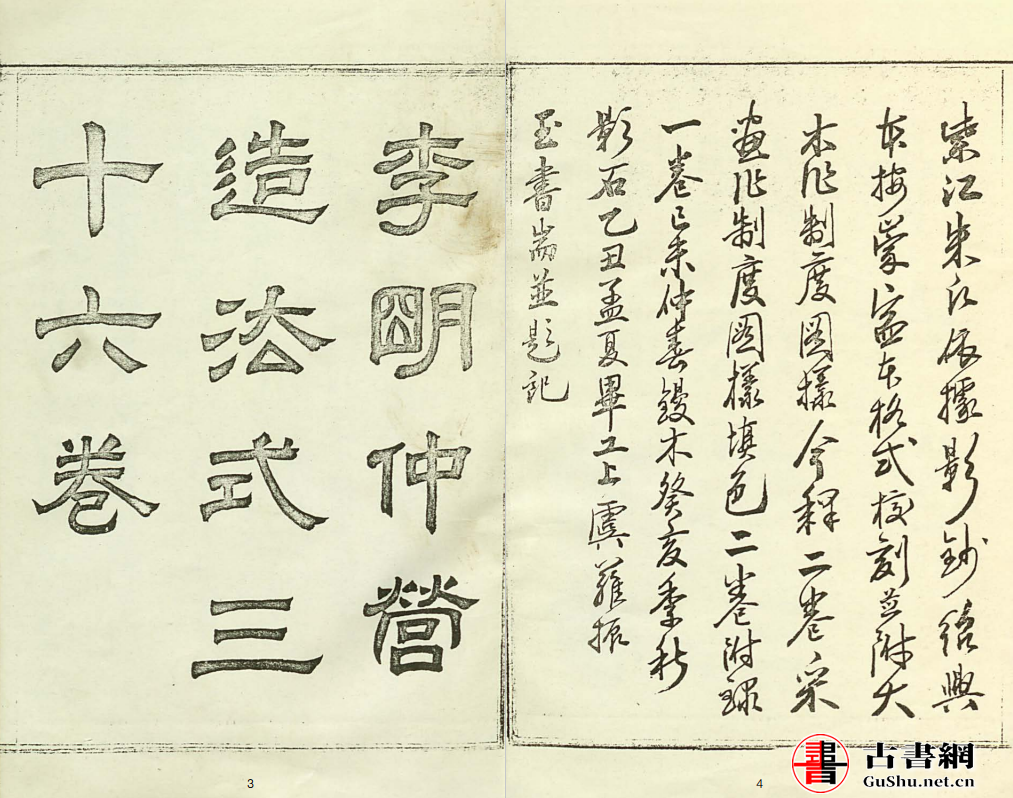 李明仲營
造法式三
十六卷
3
紫江朱氏依據影鈔紹興
本按崇寧本格式校刻並附大
木作制度圖樣今釋二卷采
畫作制度圖樣填色二卷附録
一卷己未仲春鋟木癸亥季秋
影石乙丑孟夏畢工上虞羅振
玉書耑並題記
4
書
古書網
GuShu.net.cn